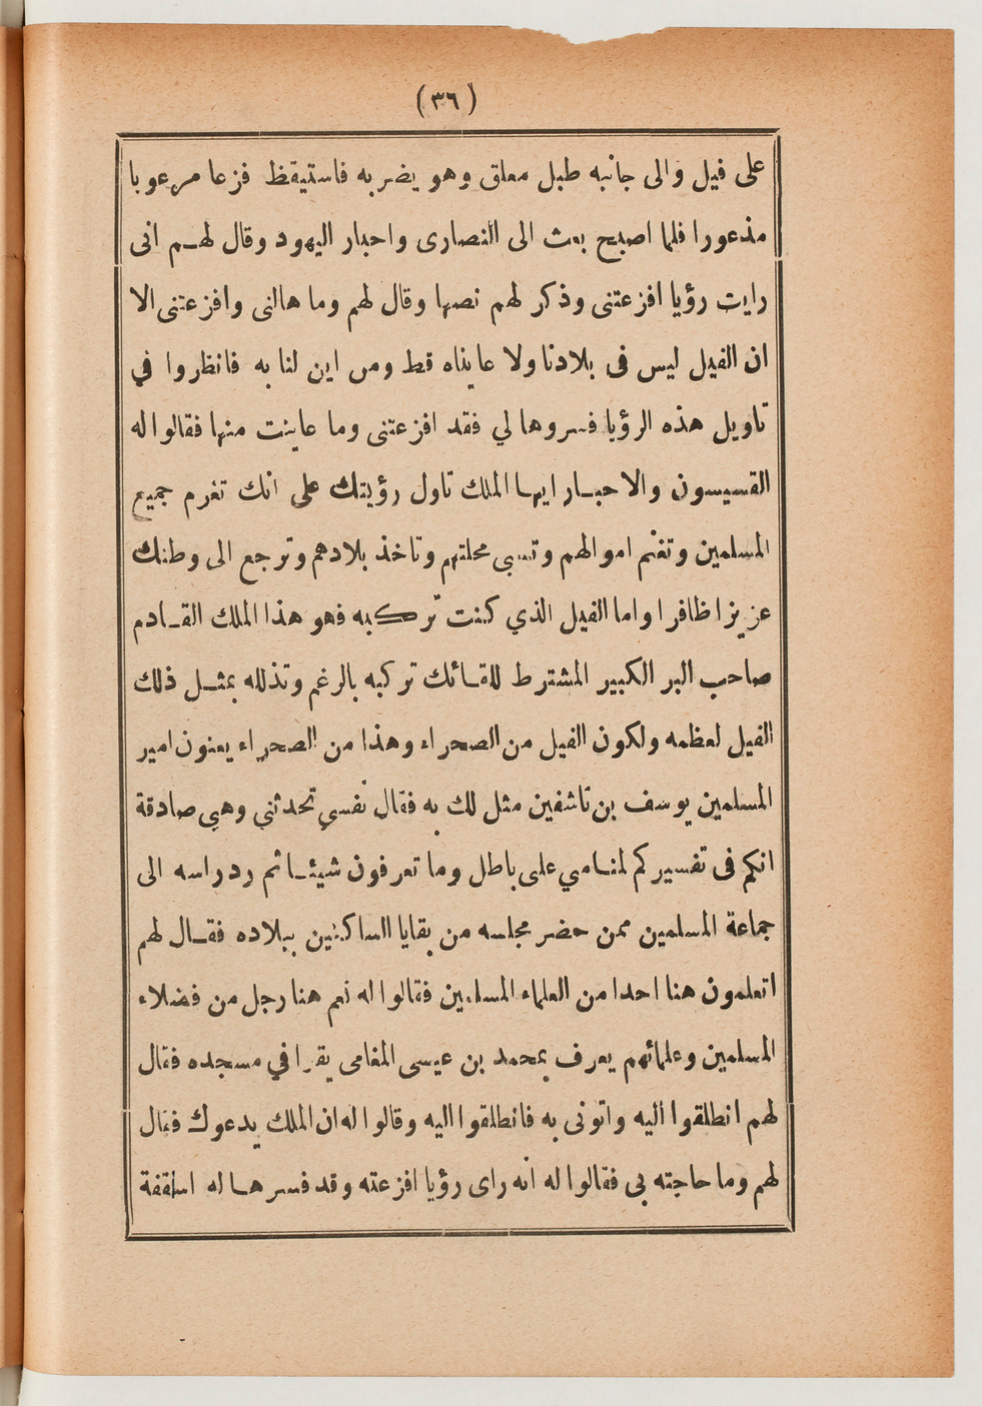 (٣٦)
على فيل والى جانبه طبل معلق وهو يضربه فاستيقظ فزعا مرعوبا
مذعورا فلما اصبح بعث الى النصارى واحبار اليهود وقال لهم انى
رايت رؤيا افزعتنى وذكر لهم نصها وقال لهم وما هالنى وافزعتنى الا
ان الفيل ليس فى بلادنا ولا عايناه قط ومن اين لنا به فانظروا في
تاويل هذه الرؤيا فسروها لي فقد افزعتنى وما عاينت منها فقالوا له
القسيسون والاحبار ايها الملك تاول رؤيتك على انك تغرم جميع
المسلمين وتغنم اموالهم وتسبى محلتهم وتاخذ بلادهم وترجع الى وطنك
عزيزا ظافرا واما الفيل الذي كنت تركبه فهو هذا الملك القادم
صاحب البر الكبير المشترط للقائك تركبه بالرغم وتذلله بمثل ذلك
الفيل لعظمه ولكون الفيل من الصحراء وهذا من الصحراء يعنون امير
المسلمين يوسف بن تاشفين مثل لك به فقال نفسي تحدثني وهي صادقة
انكم فى تفسيركم لمنامي على باطل وما تعرفون شيئا ثم رد راسه الى
جماعة المسلمين ممن حضر مجلسه من بقايا الساكنين ببلاده فقال لهم
اتعلمون هنا احدا من العلماء المسلمين فقالوا له نعم هنا رجل من فضلاء
المسلمين وعلمائهم يعرف بمحمد بن عيسى المغامى يقرا في مسجده فقال
لهم انطلقوا اليه واتونى به فانطلقوا اليه وقالوا له ان الملك يدعوك فقال
لهم وما حاجته بى فقالوا له انه راى رؤيا افزعته وقد فسرها له اساقفة